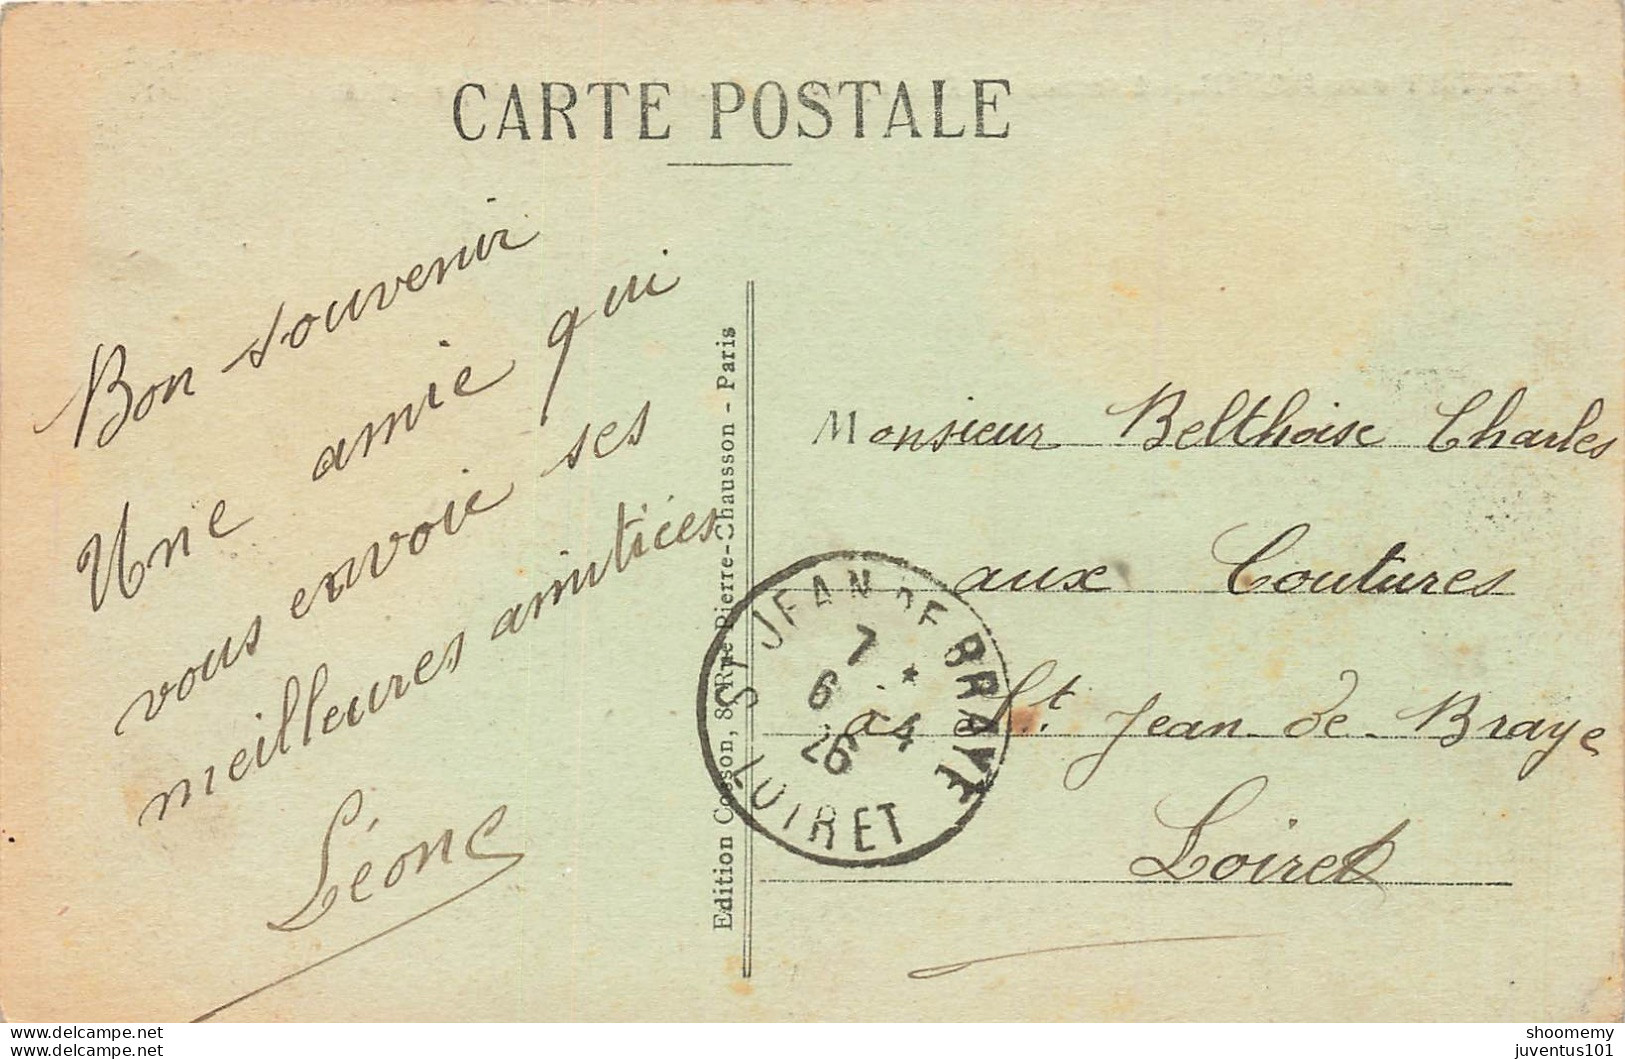 CARTE POSTALE
Bon souvenir
Une amie qui
vous envoie ses
meilleures amitiées
Léone
Edition Cosson, 8, Rue Pierre-Chausson - Paris
Monsieur Belthoise Charles
aux Coutures
à St. Jean-de-Braye
Loiret
ST JEAN DE BRAYE
7
6 - 4
26
LOIRET
www.delcampe.net
www.delcampe.net
shoomemy
juventus101